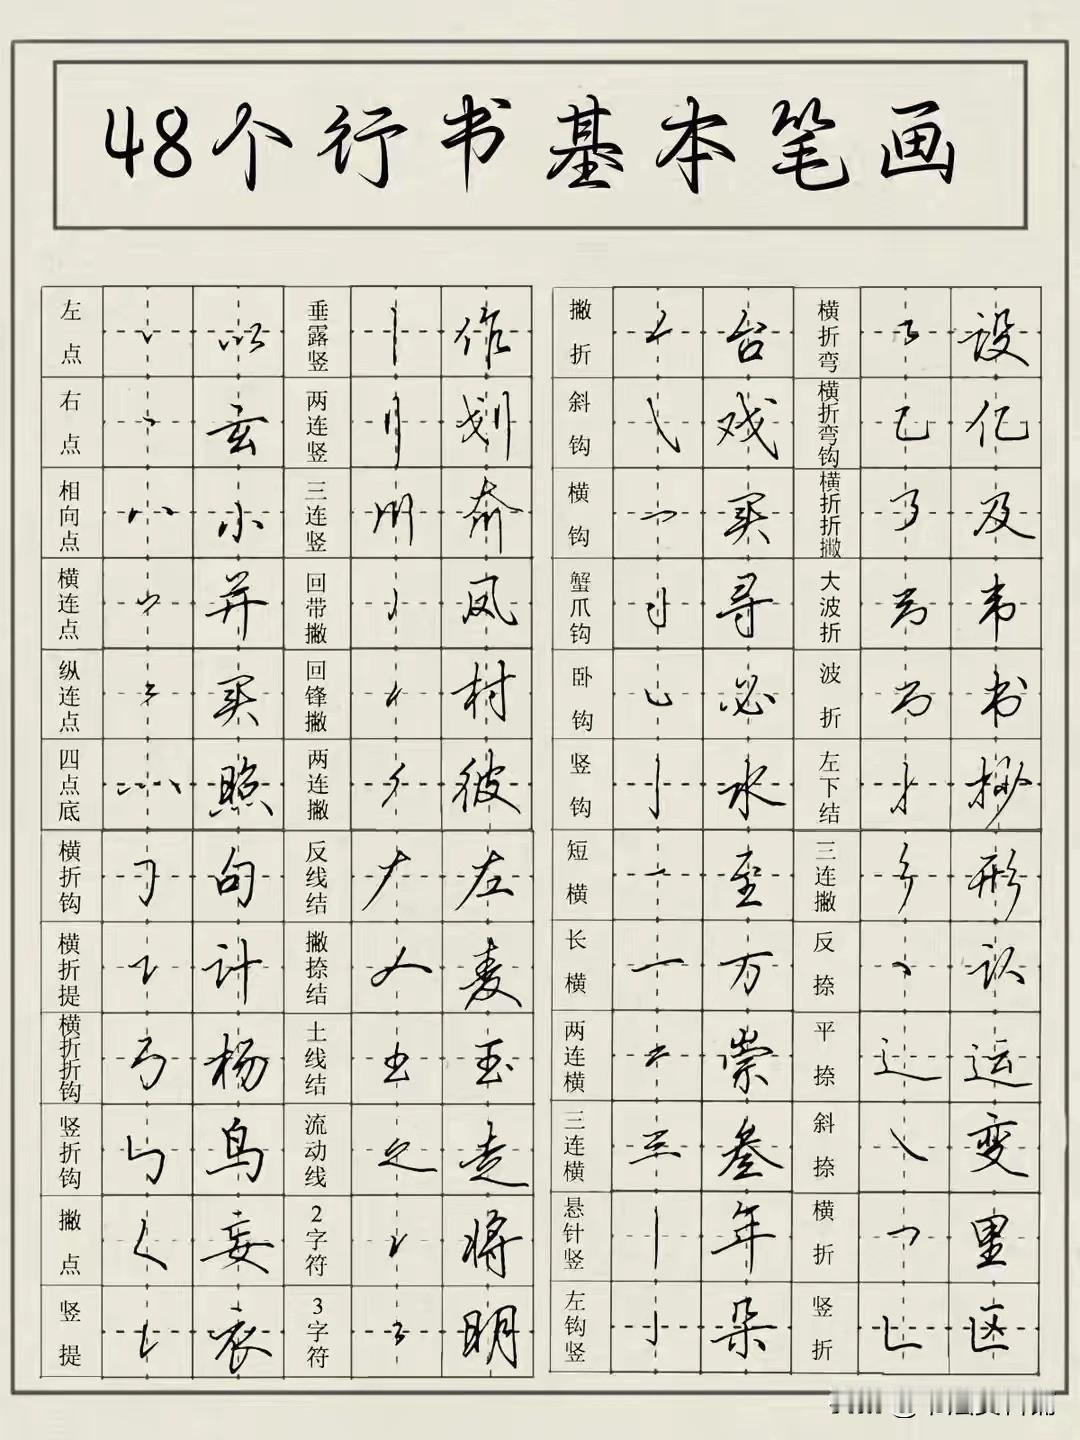 48个行书基本笔画
左点 以 垂露竖 作 撇折 台 横折弯 设
右点 玄 两连竖 划 斜钩 戏 横折弯钩 亿
相向点 小 三连竖 俞 横钩 买 横折折撇 及
横连点 并 回带撇 凤 蟹爪钩 寻 大波折 韦
纵连点 买 回锋撇 村 卧钩 必 波折 书
四点底 照 两连撇 彼 竖钩 水 左下结
横折钩 句 反线结 左 短横 至 三连撇 形
横折提 计 撇捺结 麦 长横 万 反捺 识
横折折钩 杨 土线结 玉 两连横 崇 平捺 运
竖折钩 鸟 流动线 走 三连横 叁 斜捺 变
撇点 妄 2字符 将 悬针竖 年 横折 里
竖提 衣 3字符 明 左钩竖 朵 竖折 区